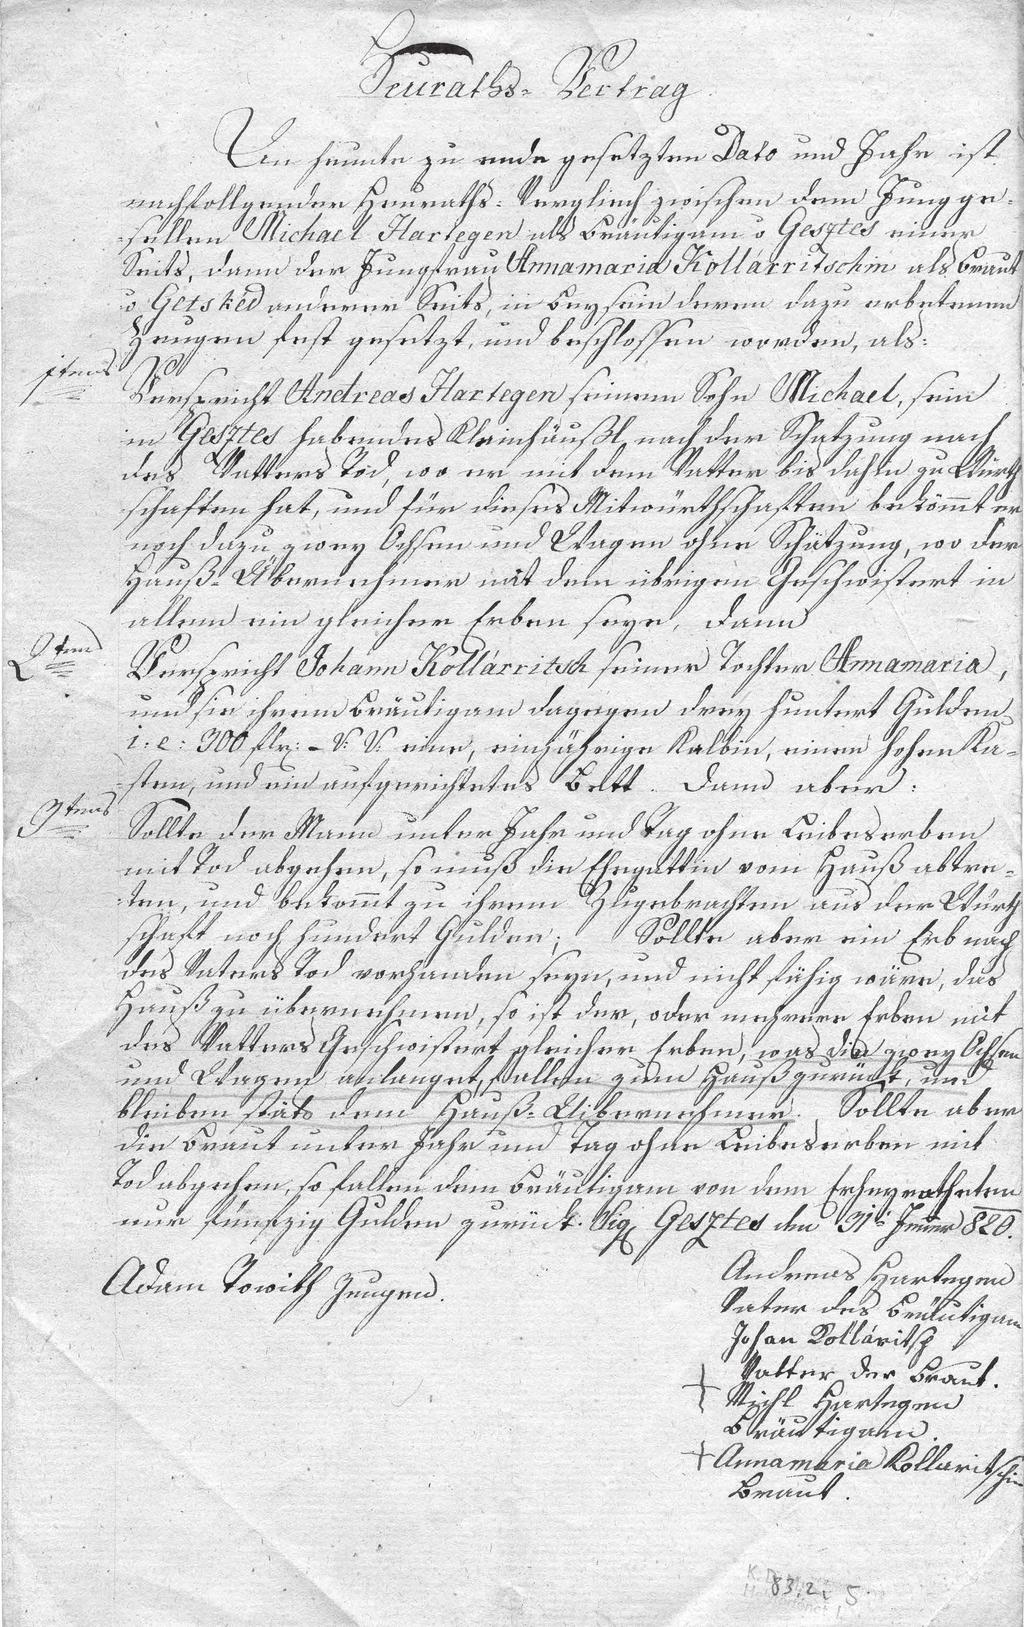 Heuraths-Vertrag
An heunte zu ende gesetzten Dato und Jahr ist
nachfollgender Heuraths-Vergliech zwischen dem Jungge-
sellen Michael Hartegen als Bräutigam v Gesztes einer
Seits, dann der Jungfrau Annamaria Kollárritschin als Braut
v Getskéd anderer Seits, in Beysein deren dazu erbetenen
Zeugen fest gesetzt, und beschlossen worden, als:
1tens
Verspricht Andreas Hartegen seinem Sohn Michael, sein
in Gesztes habendes Kleinhäußl, nach der Schatzung nach
des Vatters Tod, wo er mit dem Vatter bis dahin zu Würth
schaften hat, und für dieses Mitwürthschaften bekömmt er
noch dazu zwey Ochsen und Wagen ohne Schätzung, wo der
Hauß-Übernehmer mit dem übrigen Geschwistert in
allem ein gleicher Erben seye, dann
2tens
Verspricht Johann Kollárritsch seiner Tochter Annamaria,
und sie ihrem Bräutigam dagegen drey huntert Gulden
i: e: 300 flr: – V: V: eine, einjährige Kalbin, einen hohen Ka-
sten, und ein aufgerichtetes Bett. Dann aber:
3tens
Sollte der Mann unter Jahr und Tag ohne Leibeserben
mit Tod abgehen, so muß die Ehegattin vom Hauß abtre-
ten, und bekommt zu ihrem Zugebrachten aus der Würth
schaft noch hundert Gulden; Sollte aber ein Erb nach
des Vaters Tod vorhanden seye, und nicht fähig wäre, das
Hauß zu übernehmen, so ist der, oder mehrere Erben mit
des Vatters Geschwistert gleicher Erben, was die zwey Ochsen
und Wagen anlanget, fallen zum Hauß zurück, und
bleiben stäts dem Hauß-Uibernehmer. Sollte aber
die Braut unter Jahr und Tag ohne Leibeserben mit
Tod abgehen, so fallen dem Bräutigam von dem Erheyratheten
nur fünfzig Gulden zurück. Sig. Gesztes den 31t Jenner 820.
Adam Towith Zeugen.
Andreas Hartegen
Vater des Bräutigam
Johan Kolláritsch
Vatter der Braut.
+ Michl Hartegen
Bräutigam.
+ Annamaria Kollaritschin
Braut.
83.2. 5.